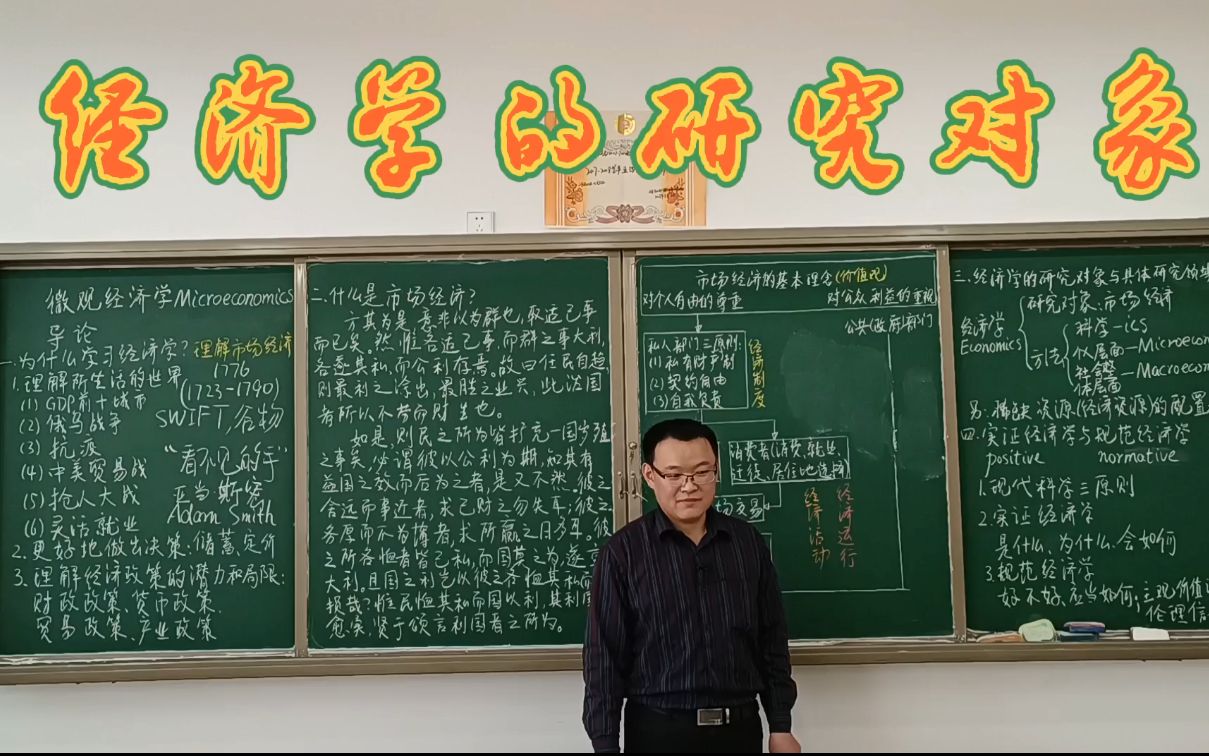 经济学的研究对象
2017-2018学年
微观经济学Microeconomics
导论
一.为什么学习经济学?理解市场经济
1.理解所生活的世界
1776
(1723-1790)
(1) GDP前十城市
(2) 俄乌战争
SWIFT,谷物
(3) 抗疫
(4) 中美贸易战
“看不见的手”
(5) 抢人大战
亚当·斯密
(6) 灵活就业
Adam Smith
2.更好地做出决策:储蓄,定价
3.理解经济政策的潜力和局限:
财政政策、货币政策、
贸易政策、产业政策
二.什么是市场经济?
方其为是,意非以为群也,取适己事
而已矣。然惟各适己事,而群之事大利,
各遂其私,而公利存焉。故曰任民自趋,
则最利之涂出,最胜之业兴,此法国
者所以不劳而财生也。
如是,则民之所为皆扩充一国岁殖
之事矣。必谓彼以公利为期,和其有
益国之效而后为之者,是又不然。彼之
舍远而事近者,求己财之勿失耳;彼之
务厚而不为薄者,求所赢之日多耳。彼
之所各恤者皆己私,而国其之为,遂
大利。且国之利岂以彼之各恤其私而
损哉?惟民恤其私而国以利,其利国
愈实,贤于颂言利国者之所为。
市场经济的基本理念(价值观)
对个人自由的尊重
对公众利益的重视
公共(政府)部门
私人部门三原则:
(1) 私有财产制
(2) 契约自由
(3) 自我负责
经济制度
消费者(消费、就业、
迁徙、居住地选择)
场交易
经济活动
经济运行
三.经济学的研究对象与具体研究领域
经济学
Economics
研究对象:市场经济
方法
科学-ics
个人层面-Microecon
社会整
体层面-Macroecon
另:稀缺资源(经济资源)的配置
四.实证经济学与规范经济学
positive normative
1.现代科学三原则
2.实证经济学
是什么、为什么、会如何
3.规范经济学
好不好,应当如何;主观价值
伦理信